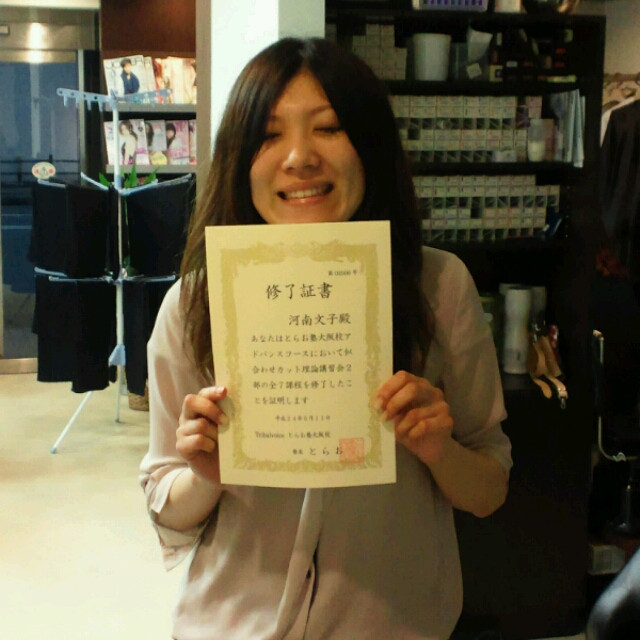 修了証書
河南文子殿
あなたはとらお塾大阪校ア
ドバンスコースにおいて似
合わせカット理論講習会2
部の全7課程を修了したこ
とを証明します
とらお塾大阪校
塾長 とらお